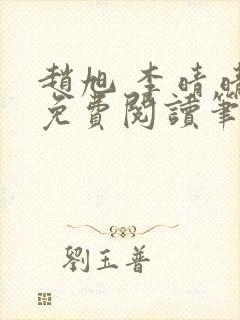 趙旭 李晴晴
免費閱讀筆
劉玉普